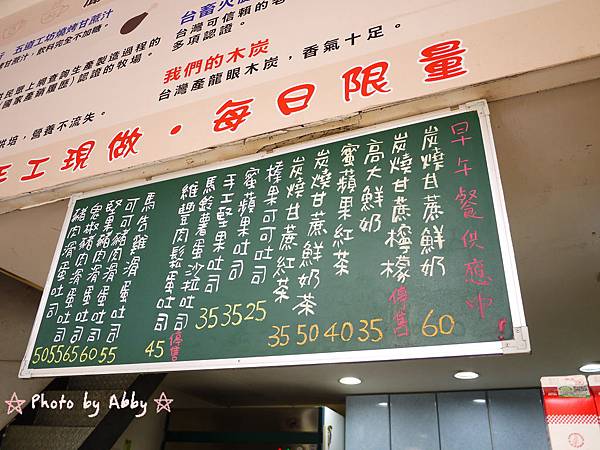 五道工坊燒烤甘蔗汁
台畜火
台灣可信賴的老
多項認證。
我們的木炭
台灣產龍眼木炭，香氣十足。
民眾上網查詢生產製造過程的
國家產銷履歷）認證的牧場。
烘培，營養不流失。
手工現做。每日限量
早午餐供應中！
炭燒甘蔗鮮奶 60
炭燒甘蔗檸檬 停售
高大鮮奶 35
蜜蘋果紅茶 40
炭燒甘蔗鮮奶茶 50
炭燒甘蔗紅茶 35
榛果可可吐司 25
蜜蘋果吐司 35
手工堅果吐司 35
馬鈴薯蛋沙拉吐司 停售
維豐肉鬆蛋吐司 45
馬告雞滑蛋吐司 55
可可豬肉滑蛋吐司 60
堅果豬肉滑蛋吐司 65
鬼椒豬肉滑蛋吐司 55
豬肉滑蛋吐司 50
☆ Photo by Abby ☆